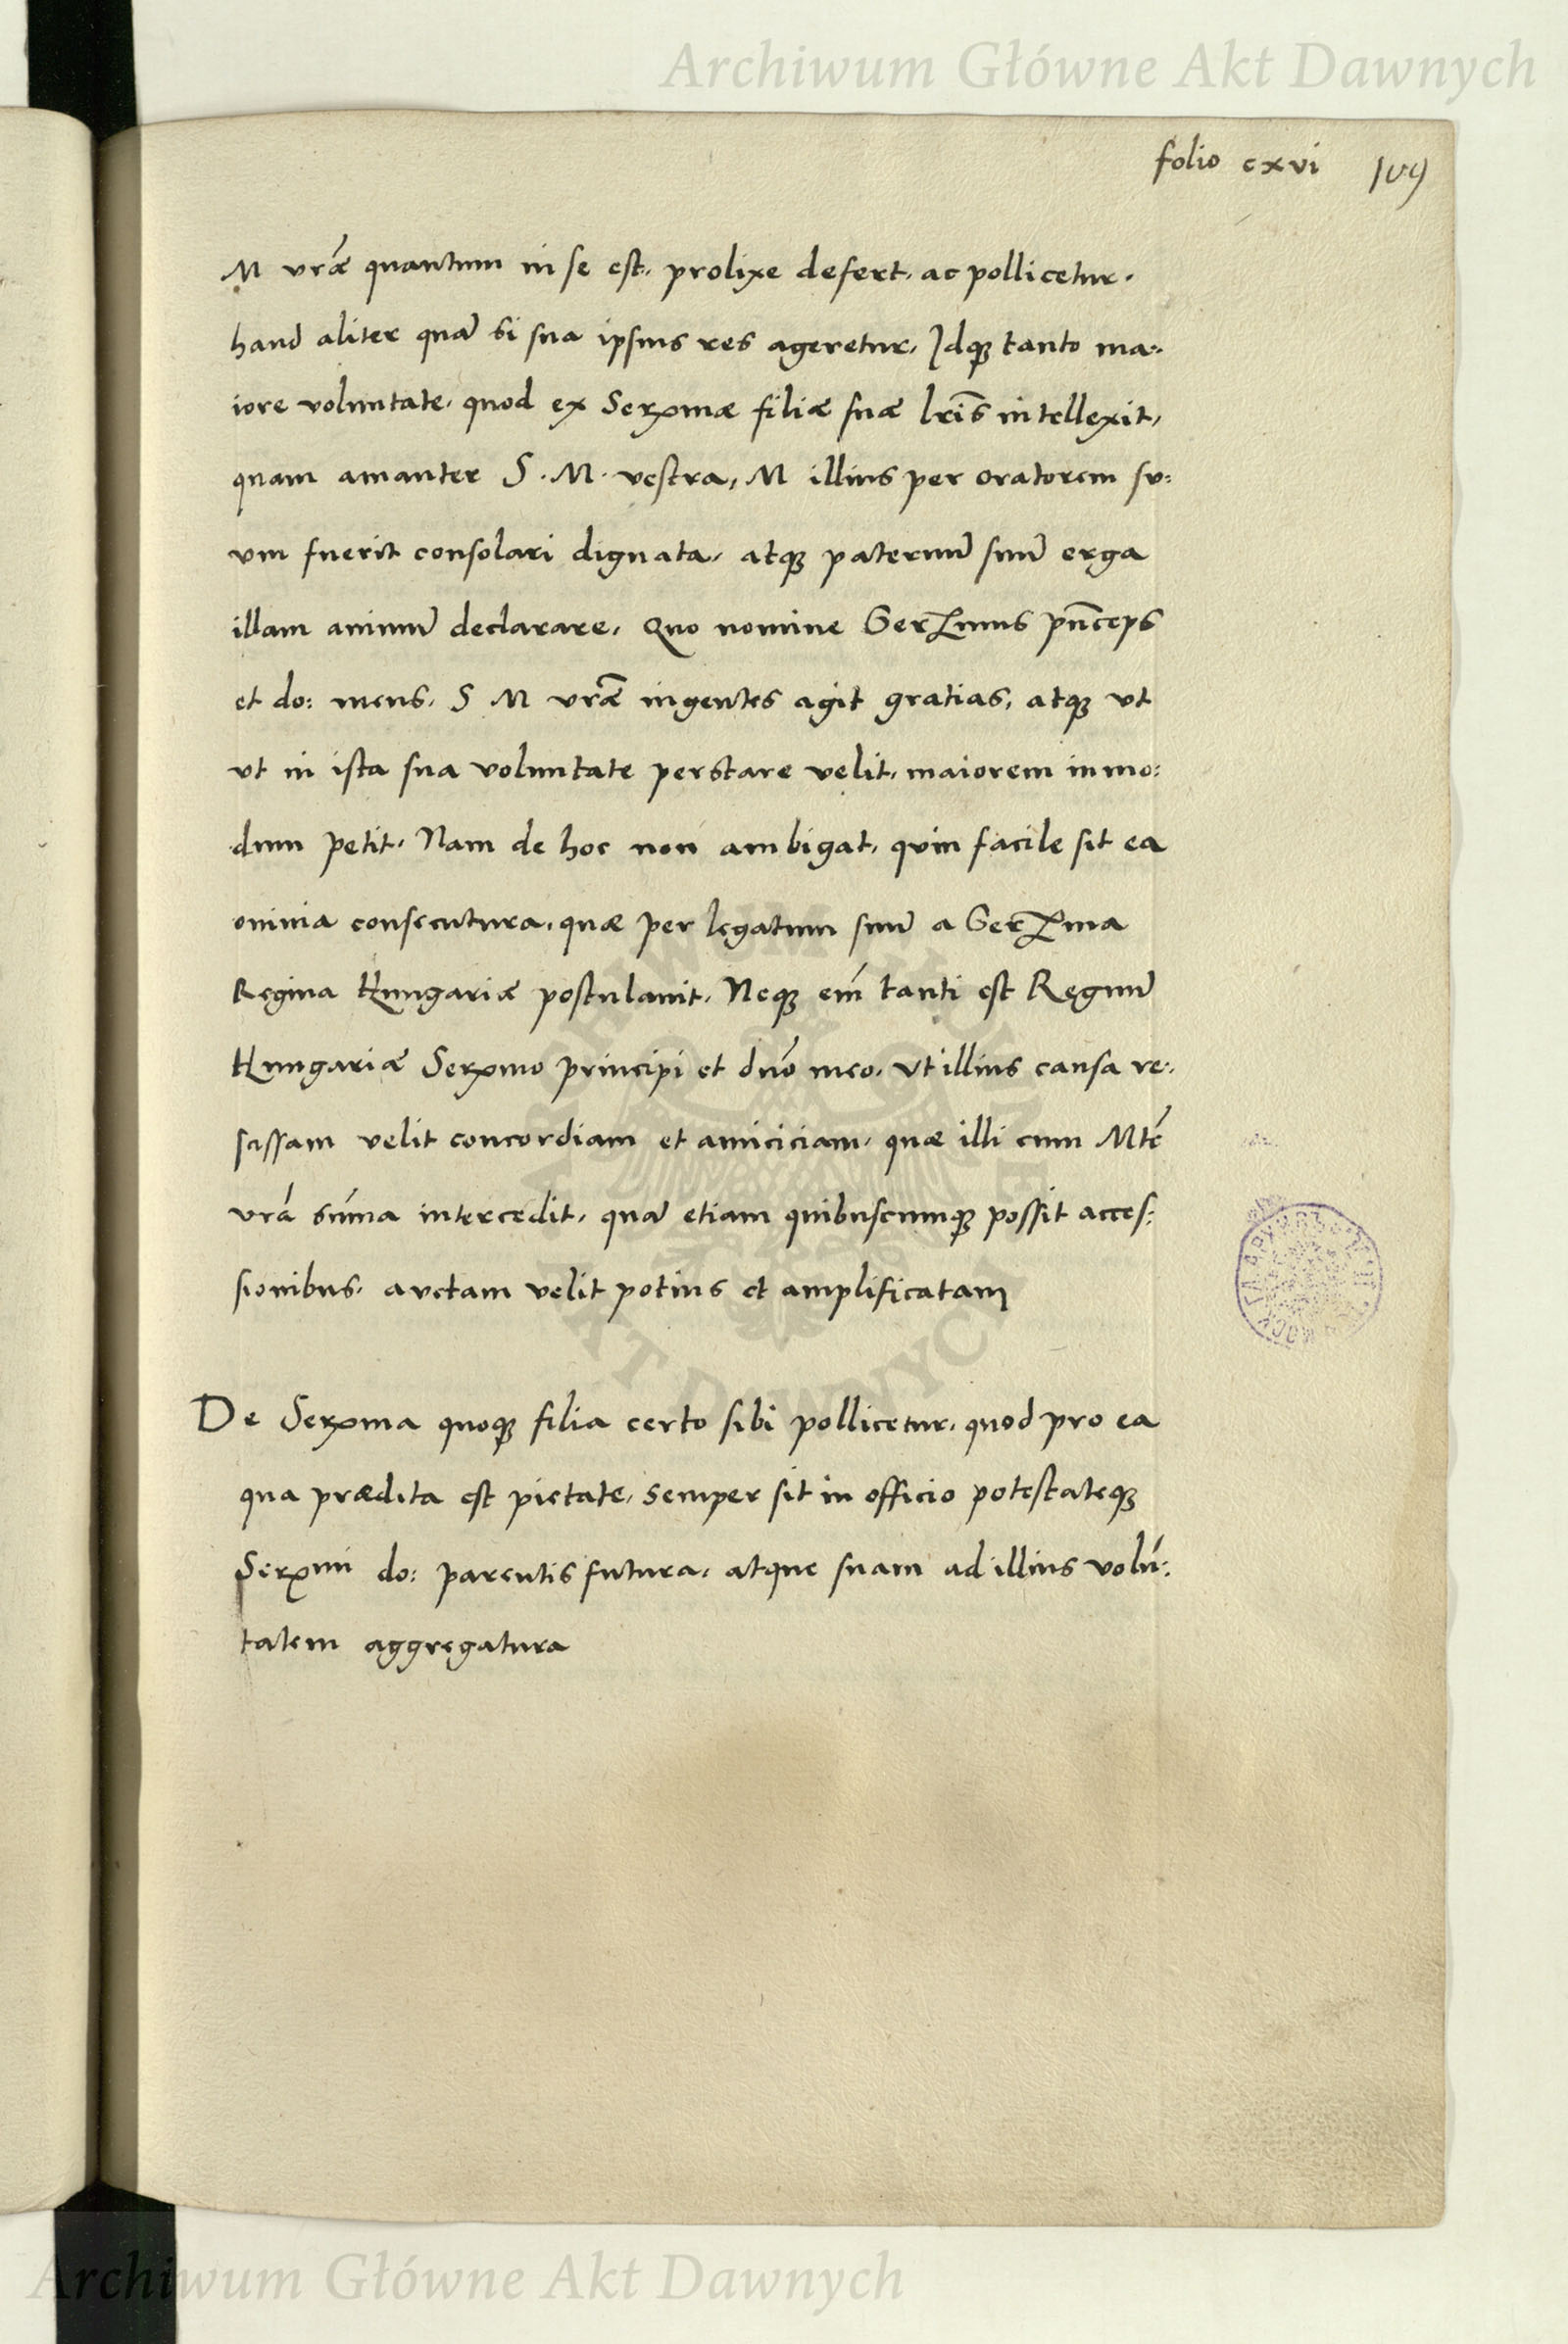 Archiwum Główne Akt Dawnych
folio cxvi 109
M vr̃æ quantum in se est, prolixe defert, ac pollicetur,
haud aliter quã si sua ipsius res ageretur, Idq; tanto ma:
iore voluntate, quod ex Serx̃mæ filiæ suæ lr̃is intellexit,
quam amanter S. M. vestra, M illius per oratorem su:
um fuerit consolari dignata, atq; paternũ suũ erga
illam animũ declarare, Quo nomine Serx̃mus pñceps
et do: meus, S M vr̃æ ingentes agit gratias, atq; ut
ut in ista sua voluntate perstare velit, maiorem in mo:
dum petit, Nam de hoc non ambigat, quin facile sit ea
omnia consecutura, quæ per legatum suũ a Serx̃ma
Regina Hungariæ postulavit, Neq; em̃ tanti est Regnũ
Hungariæ Serx̃mo principi et dño meo, ut illius causa re:
scissam velit concordiam et amiciciam, quæ illi cum Mte͂
vrã sũma intercedit, quã etiam quibuscumq; possit acces:
sionibus, auctam velit potius et amplificatam
De Serx̃ma quoq; filia certo sibi pollicetur, quod pro ea
qua prædita est pietate, semper sit in officio potestateq;
Serx̃mi do: parentis futura, atque suam ad illius volũ:
tatem aggregatura
ARCHIWUM GŁÓWNE AKT DAWNYCH
Archiwum Główne Akt Dawnych